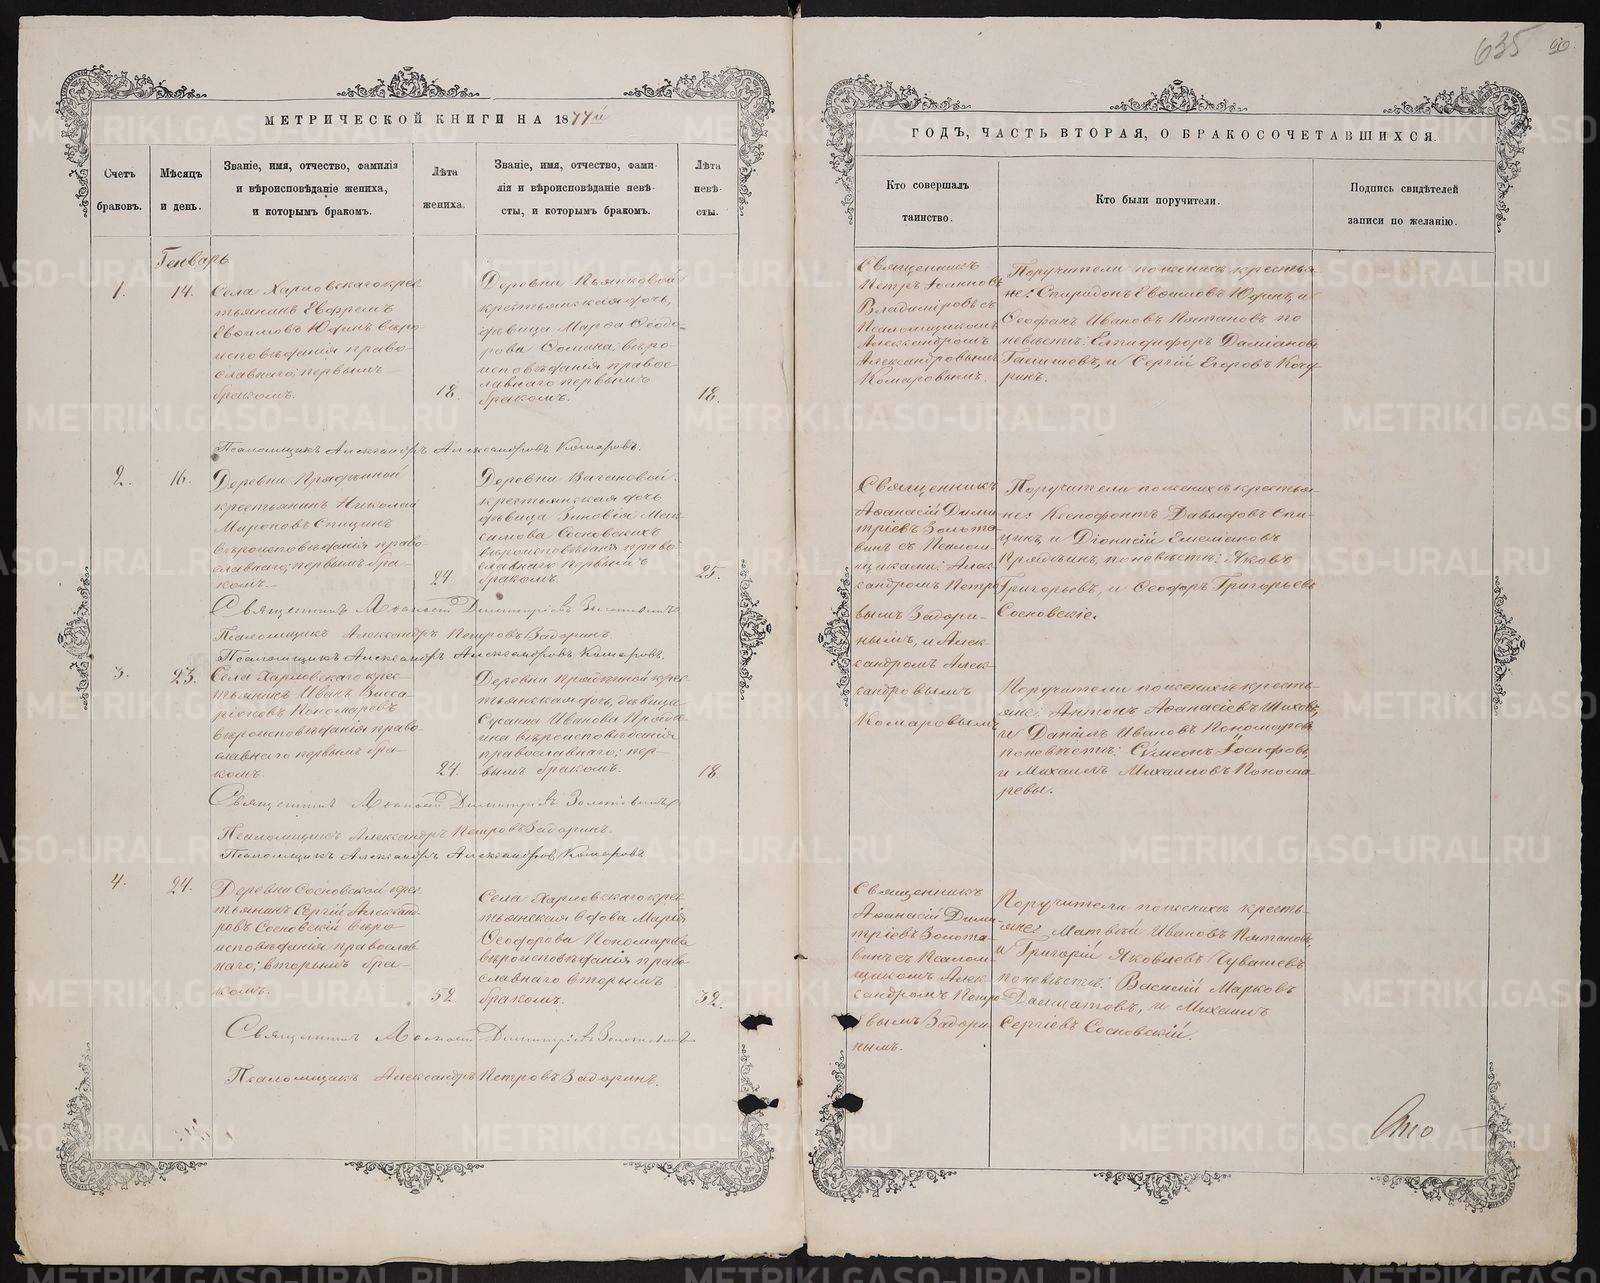 635
66.
МЕТРИЧЕСКОЙ КНИГИ НА 1877й
ГОДЪ, ЧАСТЬ ВТОРАЯ, О БРАКОСОЧЕТАВШИХСЯ.
Счетъ
браковъ.
Мѣсяцъ
и день.
Званіе, имя, отчество, фамилія
и вѣроисповѣданіе жениха,
и которымъ бракомъ.
Лѣта
жениха.
Званіе, имя, отчество, фами-
лія и вѣроисповѣданіе невѣ-
сты, и которымъ бракомъ.
Лѣта
невѣ-
сты.
Кто совершалъ
таинство.
Кто были поручители.
Подпись свидѣтелей
записи по желанію.
Генварь
1.
14.
Села Харловскаго крес
тьянинъ Ефремъ
Евѳимовъ Юдинъ вѣро-
исповѣданія право-
славнаго; первымъ
бракомъ.
18.
Деревни Пьянковой
крестьянская дочь,
дѣвица Марѳа Ѳеодо-
рова Ѳомина, вѣро-
исповѣданія правос-
лавнаго первымъ
бракомъ.
18.
Священникъ
Петръ Іоанновъ
Владиміровъ съ
Псаломщикомъ
Александромъ
Александровымъ
Комаровымъ.
Поручители по женихѣ крестья
не: Спиридонъ Евѳимовъ Юдинъ, и
Ѳеофанъ Ивановъ Пятановъ по
невѣстѣ: Елпидифоръ Даміановъ
и Сергій Егоровъ Кочу
ринъ.
Псаломщикъ Александръ Александровъ Комаровъ.
2.
16.
Деревни Прядѣиной
крестьянинъ Николай
Мироновъ Спицинъ
вѣроисповѣданія право-
славнаго; первымъ бра-
комъ.
24.
Деревни Вагановой
крестьянская дочь
дѣвица Зиновія Мак-
симова Сосновскихъ
вѣроисповѣданія право-
славнаго первымъ
бракомъ.
25.
Священникъ
Аѳанасій Дими-
тріевъ Золота-
винъ съ Псалом-
щиками: Алек-
сандромъ Петро
вымъ Задори-
нымъ, и Алек-
сандромъ Алек-
сандровымъ
Комаровымъ
Поручители по женихѣ крестья-
не: Ксенофонтъ Давыдовъ Спи-
цинъ, и Діонисій
Прядѣинъ, по невѣстѣ: Яковъ
Григорьевъ, и Ѳеодоръ Григорьевъ
Сосновскіе.
Священникъ Аѳанасій Димитріевъ Золотавинъ
Псаломщикъ Александръ Петровъ Задоринъ.
Псаломщикъ Александръ Александровъ Комаровъ.
3.
23.
Села Харловскаго крес-
тьянинъ Исаакъ Висса-
ріоновъ Пономаревъ
вѣроисповѣданія право-
славнаго первымъ бра-
комъ.
24.
Деревни Прядѣиной крес
тьянская дочь, дѣвица
Сусанна Иванова Прядѣ-
ина вѣроисповѣданія
православнаго; пер-
вымъ бракомъ.
18.
Поручители по женихѣ кресть-
яне: Антонъ Аѳанасіевъ Шиховъ,
и Даніилъ Ивановъ Пономаревъ
по невѣстѣ: Сѵмеонъ Іосифовъ,
и Михаилъ Михаиловъ Понома-
ревы.
Священникъ Аѳанасій Димитріевъ Золотавинъ
Псаломщикъ Александръ Петровъ Задоринъ.
Псаломщикъ Александръ Александровъ Комаровъ
4.
24.
Деревни Сосновской крес
тьянинъ Сергій Александ-
ровъ Сосновскій вѣро-
исповѣданія православ
наго; вторымъ бра-
комъ.
52.
Села Харловскаго крес-
тьянская вдова Марія
Ѳеодорова Пономарева
вѣроисповѣданія право
славнаго вторымъ
бракомъ.
32.
Священникъ
Аѳанасій Дими-
тріевъ Золота-
винъ съ Псалом-
щикомъ Алек-
сандромъ Петро
вымъ Задори
нымъ.
Поручители по женихѣ кресть-
яне: Матвѣй Ивановъ Пятановъ,
и Григорій Яковлевъ Чувашевъ
по невѣстѣ: Василій Марковъ
Далматовъ, и Михаилъ
Сергіевъ Сосновскій.
Священникъ Аѳанасій Димитріевъ Золотавинъ
Псаломщикъ Александръ Петровъ Задоринъ.
METRIKI.GASO-URAL.RU